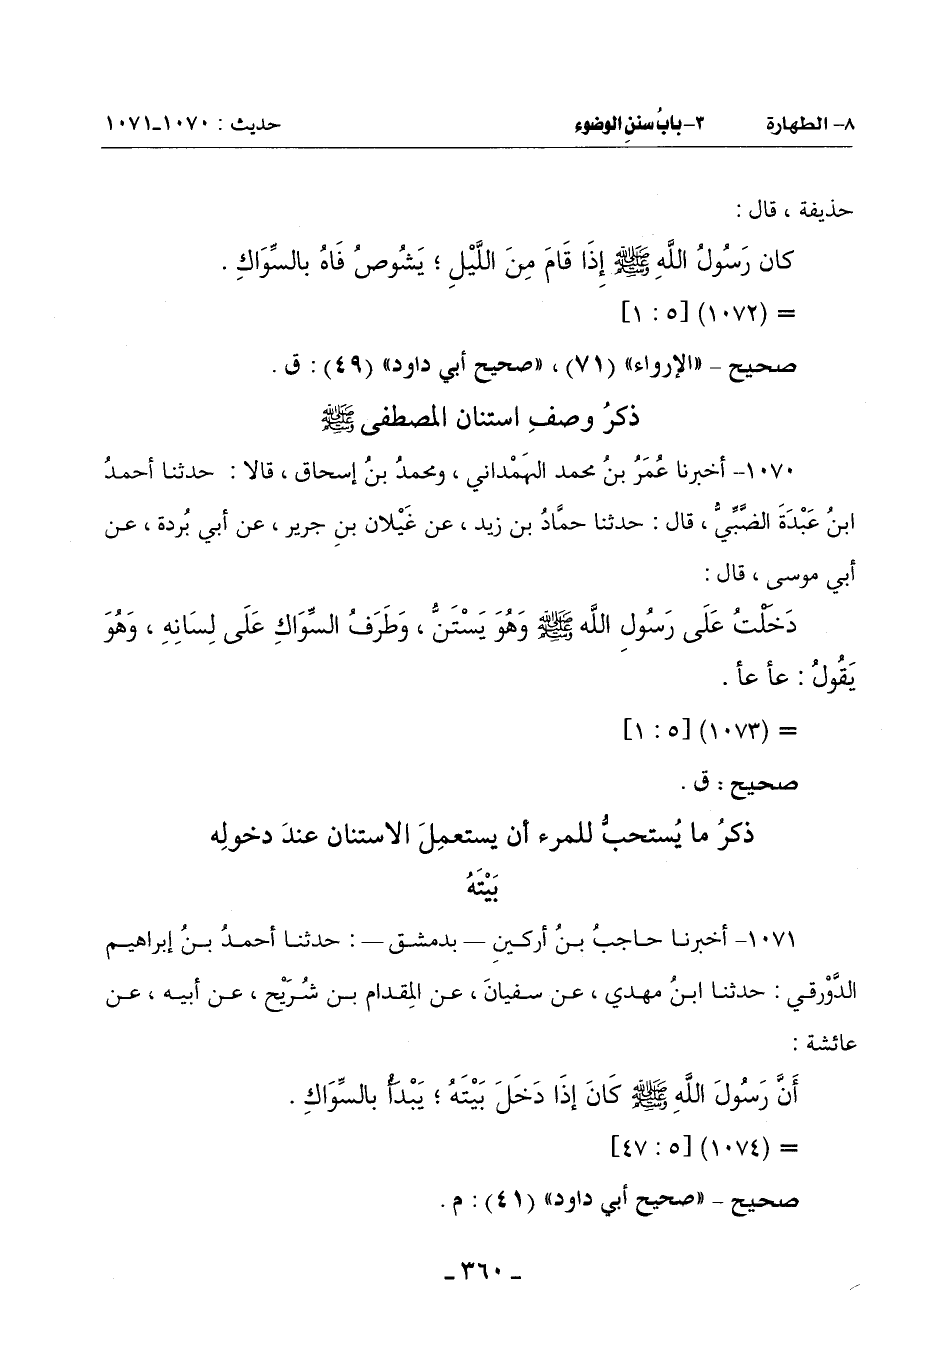 ٨- الطهارة ٣- بابُ سننِ الوضوء حديث : ١٠٧٠-١٠٧١
حذيفة ، قال :
كان رَسُولُ اللَّهِ ﷺ إِذَا قَامَ مِنَ اللَّيْلِ ؛ يَشُوصُ فَاهُ بالسِّوَاكِ .
= (١٠٧٢) [٥ : ١]
صحيح - «الإرواء» (٧١) ، «صحيح أبي داود» (٤٩) : ق .
ذكرُ وصفِ استنان المصطفى ﷺ
١٠٧٠- أخبرنا عُمَرُ بنُ محمد الهَمْداني ، ومحمدُ بنُ إسحاق ، قالا : حدثنا أحمدُ
ابنُ عَبْدَةَ الضَّبِّيُّ ، قال : حدثنا حمَّادُ بن زيد ، عن غَيْلان بنِ جرير ، عن أبي بُردة ، عن
أبي موسى ، قال :
دَخَلْتُ عَلَى رَسُولِ اللَّه ﷺ وَهُوَ يَسْتَنُّ ، وَطَرَفُ السِّوَاكِ عَلَى لِسَانِهِ ، وَهُوَ
يَقُولُ : عأ عأ .
= (١٠٧٣) [٥ : ١]
صحيح : ق .
ذكرُ ما يُستحبُّ للمرء أن يستعمِلَ الاستنان عندَ دخولِه
بَيْتَهُ
١٠٧١- أخبرنا حاجبُ بنُ أركينِ — بدمشق — : حدثنا أحمدُ بنُ إبراهيم
الدَّوْرقي : حدثنا ابنُ مهدي ، عن سفيانَ ، عن المِقدام بن شُرَيْح ، عن أبيه ، عن
عائشة :
أَنَّ رَسُولَ اللَّهِ ﷺ كَانَ إِذَا دَخَلَ بَيْتَهُ ؛ يَبْدَأُ بالسِّوَاكِ .
= (١٠٧٤) [٥ : ٤٧]
صحيح - «صحيح أبي داود» (٤١) : م .
- ٣٦٠ -